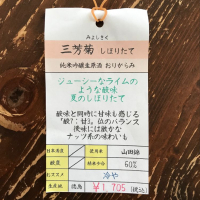 みよしきく
三芳菊 しぼりたて
純米吟醸生原酒 おりがらみ
ジューシーなライムの
ような酸味
夏のしぼりたて
酸味と同時に甘味も感じる
『酸?:甘』位のバランス
後味には微かな
ナッツ系の味わいも
日本酒度 使用米 山田錦
酸度 精米歩合 60%
おススメ 冷や
生産地 徳島 ¥1,705(税込)